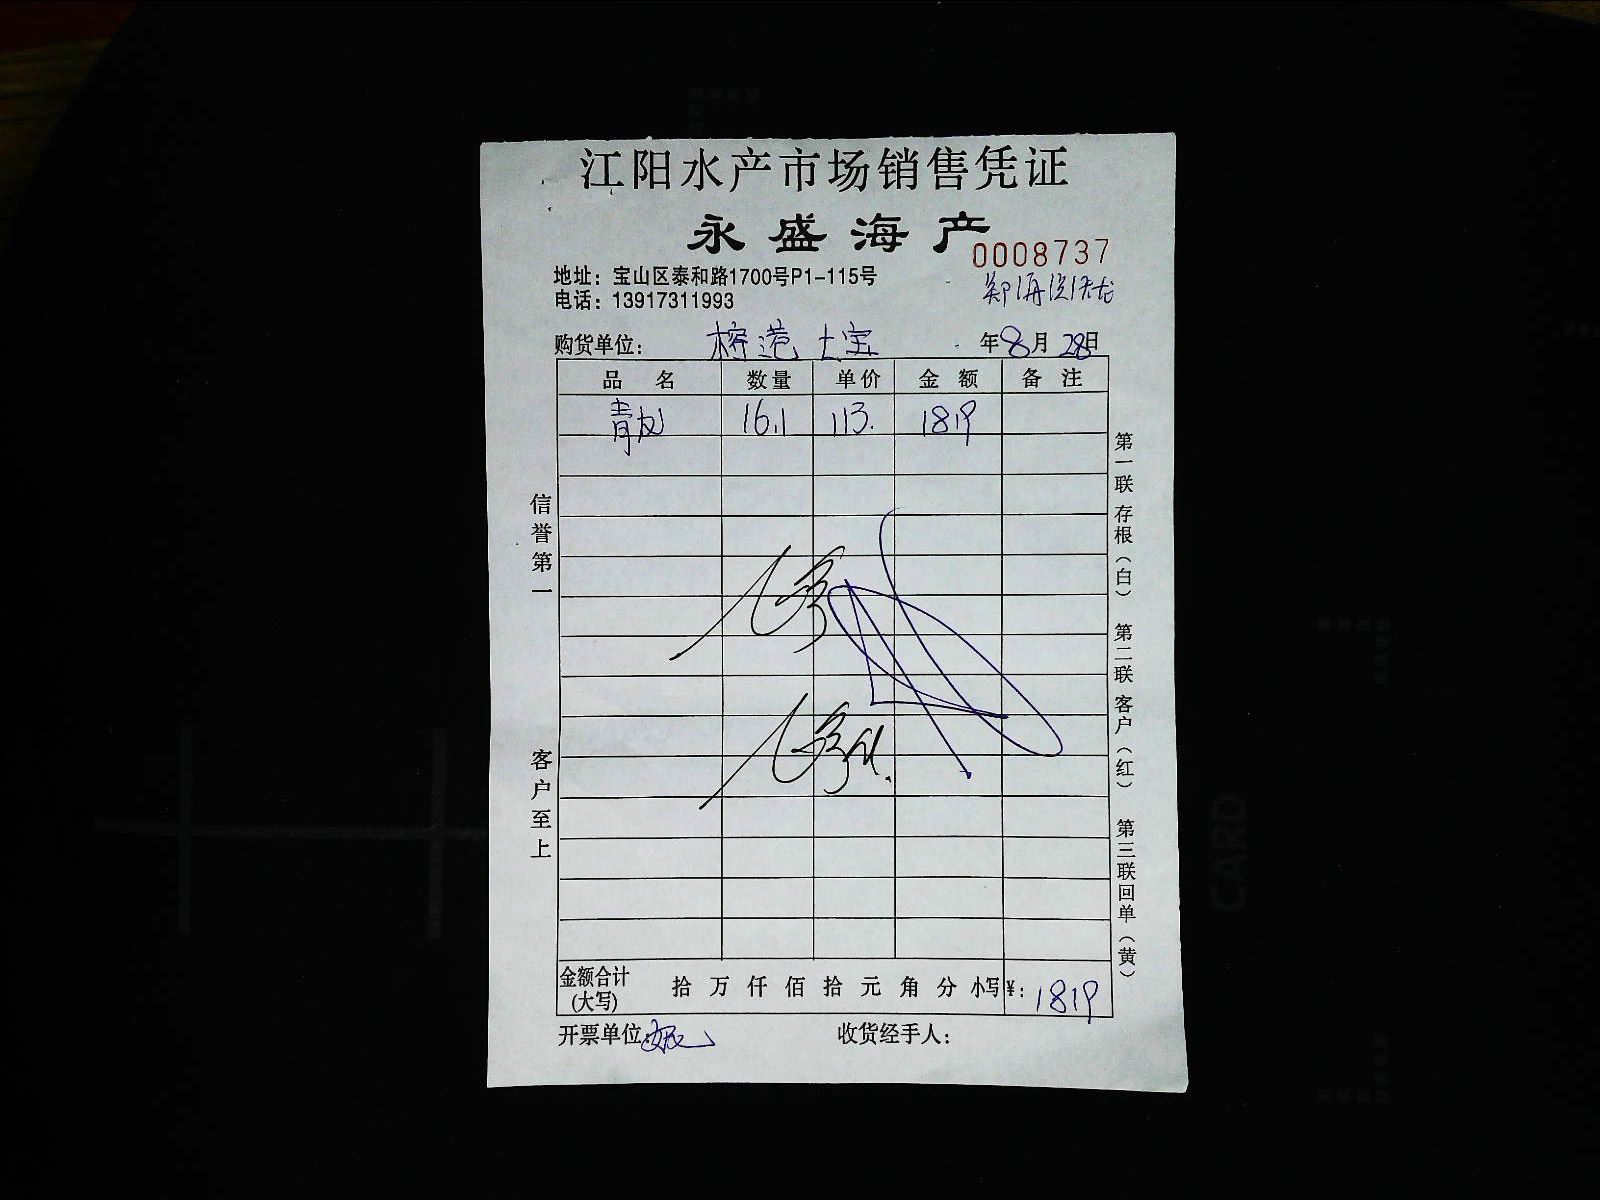 江阳水产市场销售凭证
永盛海产
0008737
地址：宝山区泰和路1700号P1-115号
电话：13917311993
购货单位： 榕港 土宝 年8月28日
品名 数量 单价 金额 备注
青龙 16.1 113. 1819
信誉第一
客户至上
第一联 存根（白） 第二联 客户（红） 第三联 回单（黄）
金额合计(大写) 拾 万 仟 佰 拾 元 角 分 小写¥：1819
开票单位： 收货经手人：